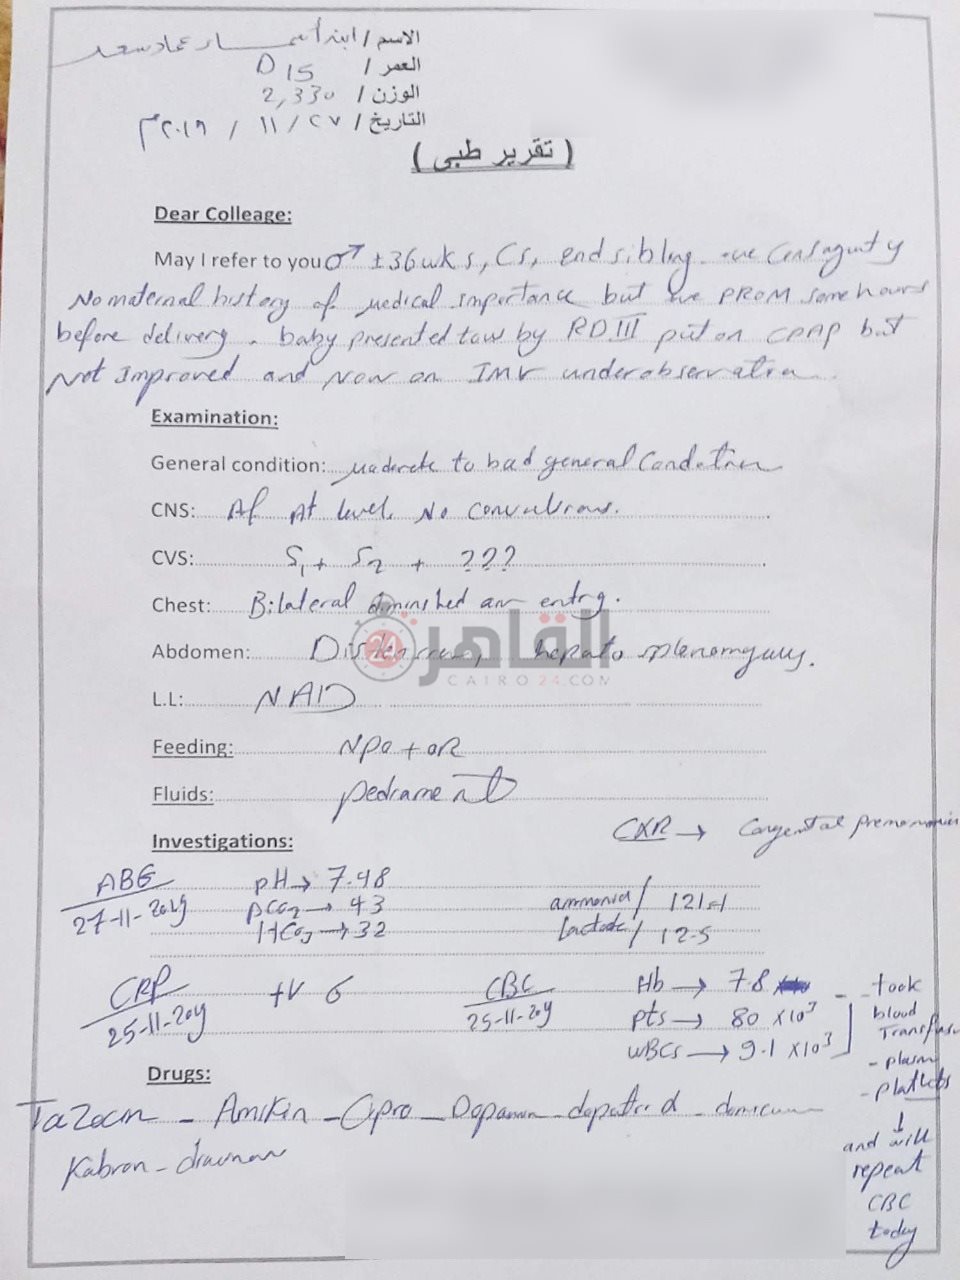 الاسم / ابن أسماء عماد سعد
العمر / D 15
الوزن / 2,330
التاريخ / ٢٧ / ١١ / ٢٠١٩م
( تقرير طبى )
Dear Colleage:
May I refer to you ♂ ±36wks, Cs, end sibling -ve
No maternal history of medical importance but +ve PROM some hours
before delivery. baby presented to us by RD III put on CPAP but
Not Improved and Now on IMV under observation.
Examination:
General condition: moderate to bad general Condition
CNS: AF At level, No convulsions.
CVS: S1 + S2 + ???
Chest: Bilateral diminshed air entry.
القاهرة 24
CAIRO24.COM
Abdomen: hepato splenomgaly.
L.L: NAD
Feeding: NPO + OR
Fluids: pedrament
CXR → Congental Pnemonia
Investigations:
ABG pH → 7.48
27-11-2019 pCO2 → 43 ammonia / 121.1
HCO3 → 32 lactate / 12.5
CRP +V 6 CBC Hb → 7.8 - took
25-11-2019 25-11-2019 pts → 80 ×10³ blood Transfusion
WBCs → 9.1 ×10³ - plasma
- platlets
Drugs: ↓
Tazocin - Amikin - Cipro - Dopamin
Kabron
and will
repeat
CBC
today